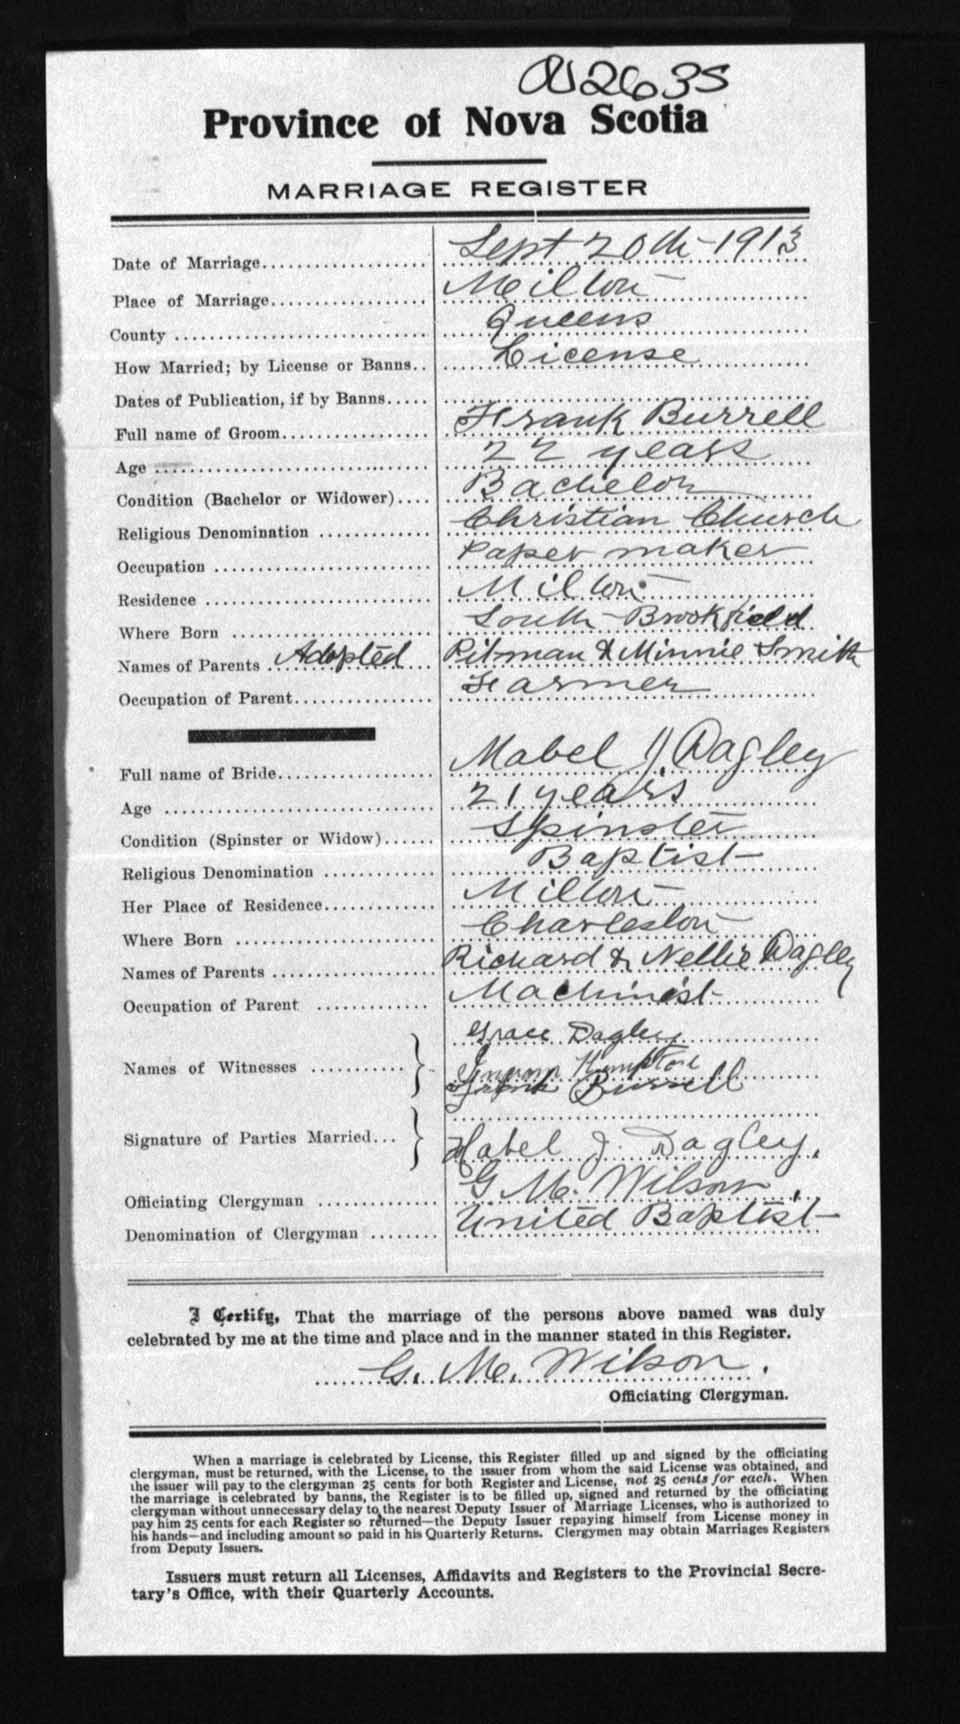 2635
Province of Nova Scotia
MARRIAGE REGISTER
Date of Marriage.................... Sept 20th - 1913
Place of Marriage................... Milton
County ............................. Queens
How Married; by License or Banns.. License
Dates of Publication, if by Banns.....
Full name of Groom................. Frank Burrell
Age ................................ 22 years
Condition (Bachelor or Widower).... Bachelor
Religious Denomination ............. Christian Church
Occupation ......................... Paper maker
Residence .......................... Milton
Where Born ......................... South Brookfield
Names of Parents Adopted Pitman & Minnie Smith
Occupation of Parent................ Farmer
Full name of Bride.................. Mabel J Dagley
Age ................................ 21 years
Condition (Spinster or Widow)...... Spinster
Religious Denomination ............. Baptist
Her Place of Residence.............. Milton
Where Born ......................... Charleston
Names of Parents ................... Richard & Nellie Dagley
Occupation of Parent ............... Machinist
Grace Dagley
Names of Witnesses ........... Kempton
Frank Burrell
Signature of Parties Married...
Mabel J. Dagley.
Officiating Clergyman .............. G. M. Wilson.
Denomination of Clergyman ........ United Baptist
I Certify, That the marriage of the persons above named was duly
celebrated by me at the time and place and in the manner stated in this Register.
G. M. Wilson.
Officiating Clergyman.
When a marriage is celebrated by License, this Register filled up and signed by the officiating
clergyman, must be returned, with the License, to the issuer from whom the said License was obtained, and
the issuer will pay to the clergyman 25 cents for both Register and License, not 25 cents for each. When
the marriage is celebrated by banns, the Register is to be filled up, signed and returned by the officiating
clergyman without unnecessary delay to the nearest Deputy Issuer of Marriage Licenses, who is authorized to
pay him 25 cents for each Register so returned—the Deputy Issuer repaying himself from License money in
his hands—and including amount so paid in his Quarterly Returns. Clergymen may obtain Marriages Registers
from Deputy Issuers.
Issuers must return all Licenses, Affidavits and Registers to the Provincial Secre-
tary's Office, with their Quarterly Accounts.